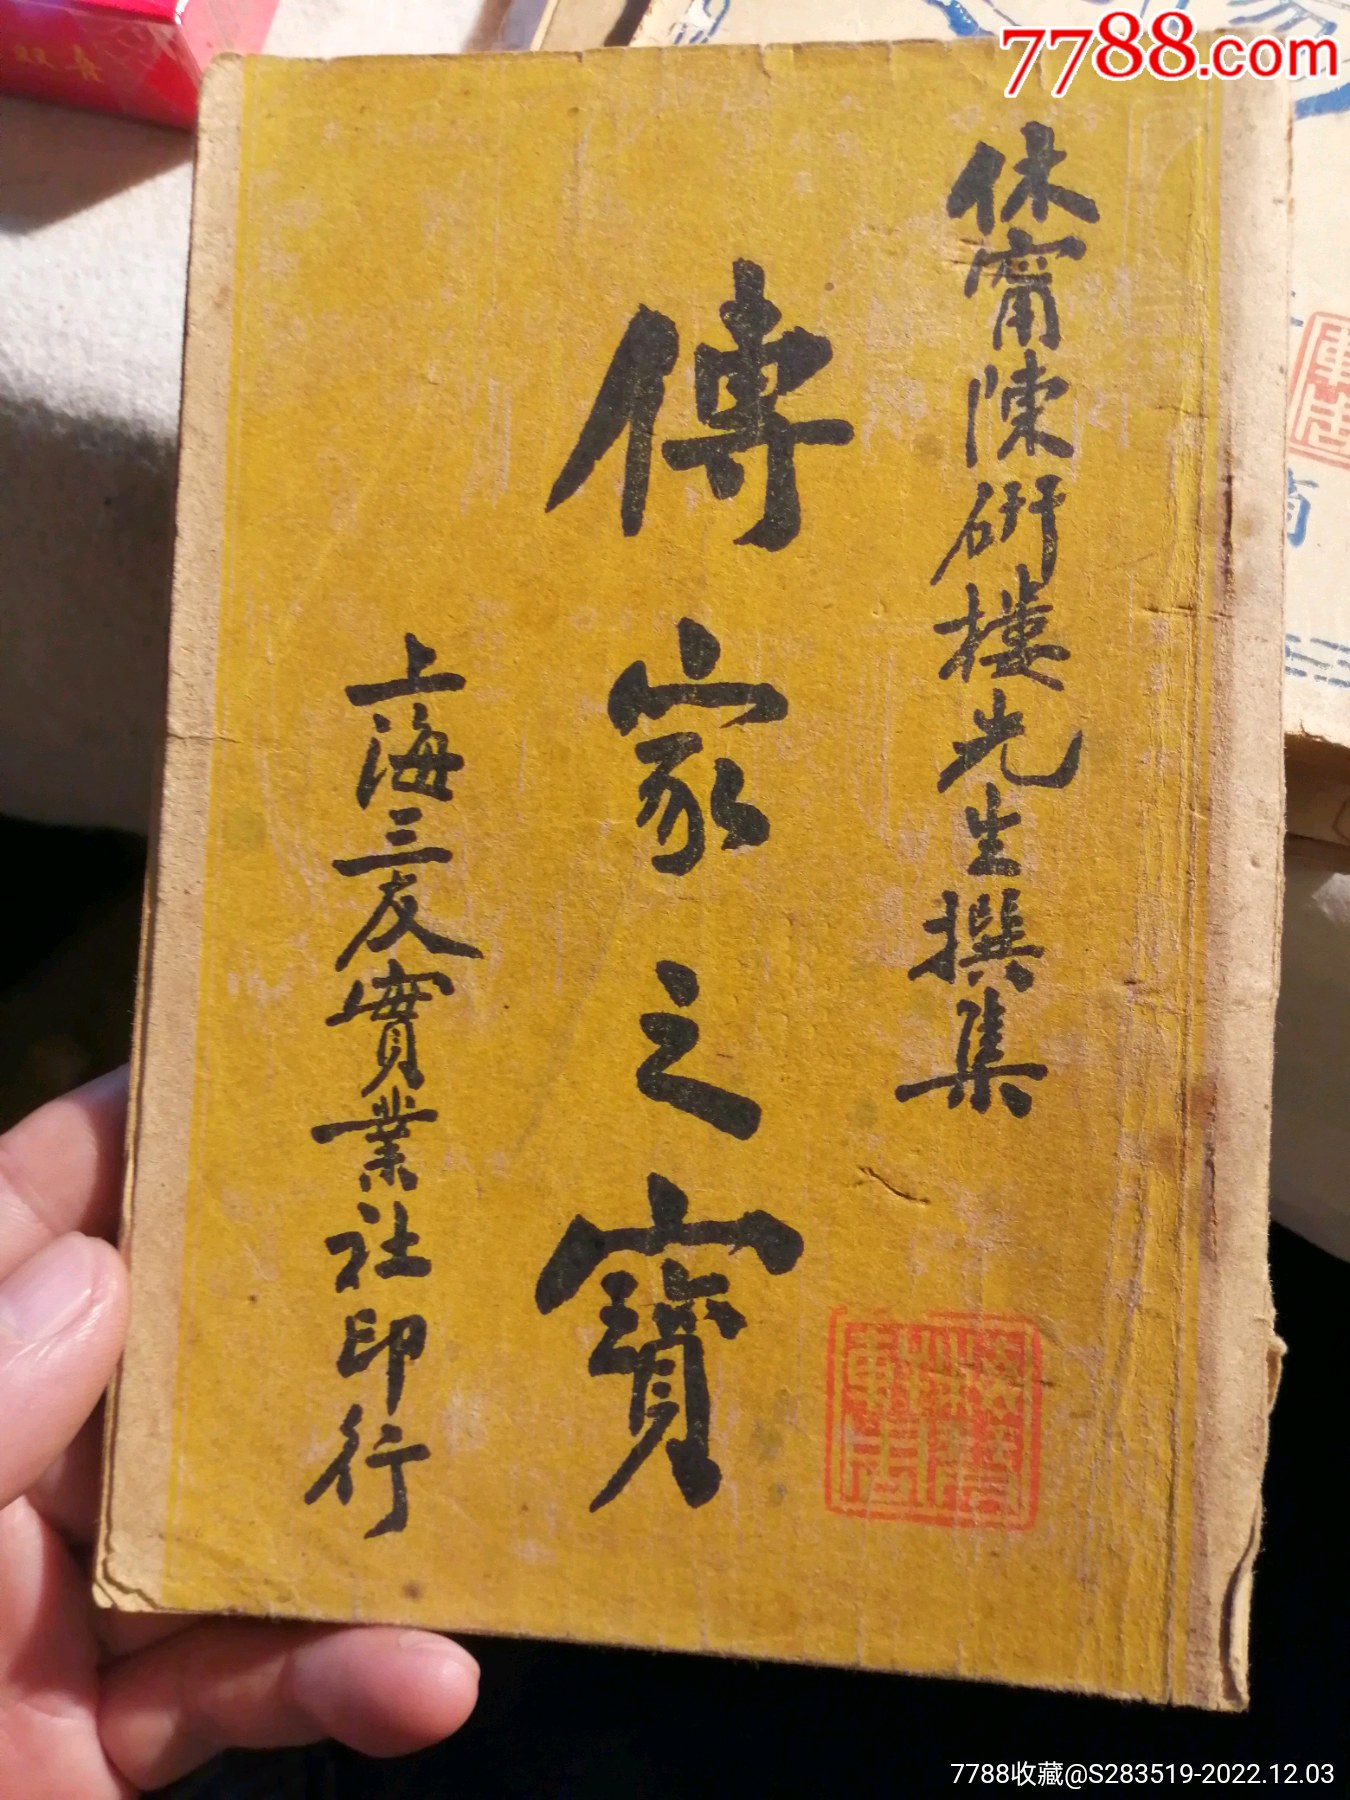 7788.com
休甯陳硏樓先生撰集
傳家之寶
上海三友實業社印行
双喜
7788收藏@S283519-2022.12.03